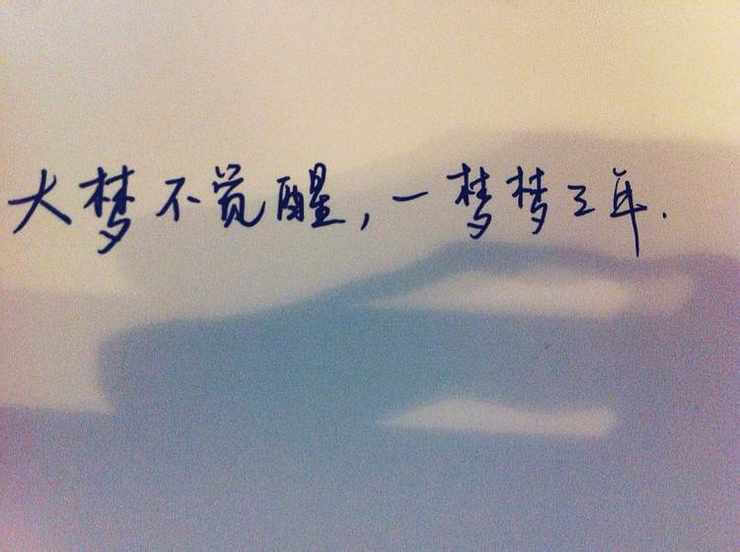 大梦不觉醒，一梦梦三年.